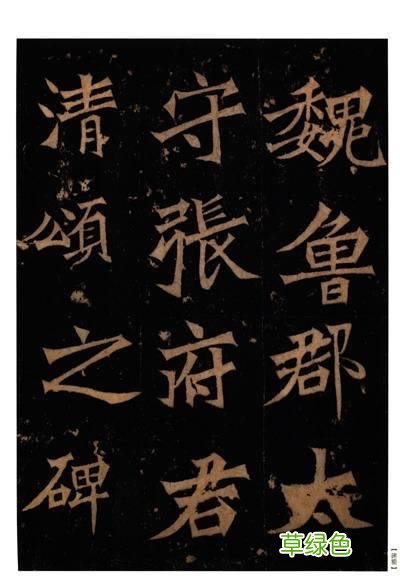 魏鲁郡太
守張府君
清頌之碑
草绿色